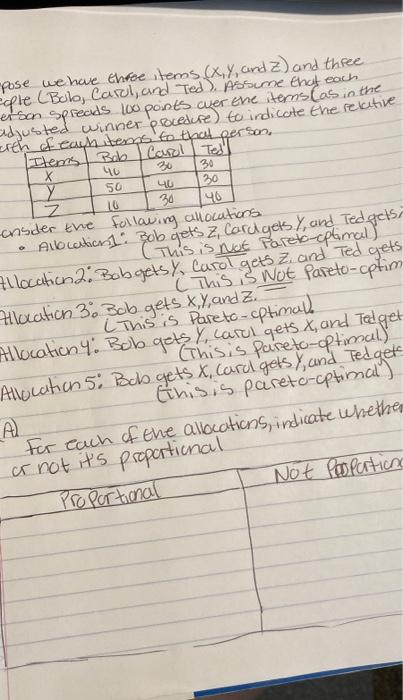 pose we have three items (X, Y, and Z) and three
eople (Bob, Carol, and Ted). Assume that each
erson spreads 100 points over the items (as in the
adjusted winner procedure) to indicate the relative
orth of each items to that person.
Items Bob Carol Ted
X 40 30 30
Y 50 40 30
Z 10 30 40
onsider the following allocations
• Allocation 1: Bob gets Z, Carol gets Y, and Ted gets
(This is Not Pareto-optimal)
Allocation 2: Bob gets Y, Carol gets Z, and Ted gets
(This is Not Pareto-optim
Allocation 3: Bob gets X, Y, and Z.
(This is Pareto-optimal)
Allocation 4: Bob gets Y, Carol gets X, and Ted get
(This is Pareto-optimal)
Allocation 5: Bob gets X, Carol gets Y, and Ted gets
(this is pareto-optimal)
(A)
For each of the allocations, indicate whether
or not it's proportional
Proportional Not Proportiona